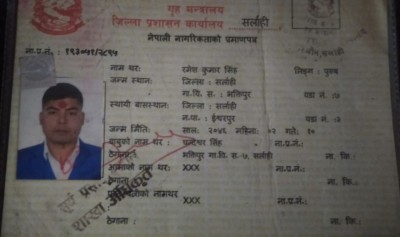 गृह मन्त्रालय
जिल्ला प्रशासन कार्यालय सर्लाही
नेपाली नागरिकताको प्रमाणपत्र
ना.प्र.नं.:
नाम थर : रमेश कुमार सिंह लिङ्ग : पुरुष
जन्म स्थान: जिल्ला : सर्लाही
गा.वि.स. : भक्तिपुर वडा नं.
स्थायी बासस्थान: जिल्ला : सर्लाही
न.पा. : ईश्वरपुर वडा नं.
जन्म मिति: साल: २०४६ महिना: ०२ गते: १०
बाबुको नाम थर : सिंह ना.प्र.नं.:
ठेगाना: भक्तिपुर गा.वि.स.-७, सर्लाही ना. कि.:
आमाको नाम थर : XXX ना.प्र.नं.:
ठेगाना : ना. कि.:
नामथर XXX ना.प्र.नं.:
ठेगाना : ना. कि.:
शाखा अधिकृत